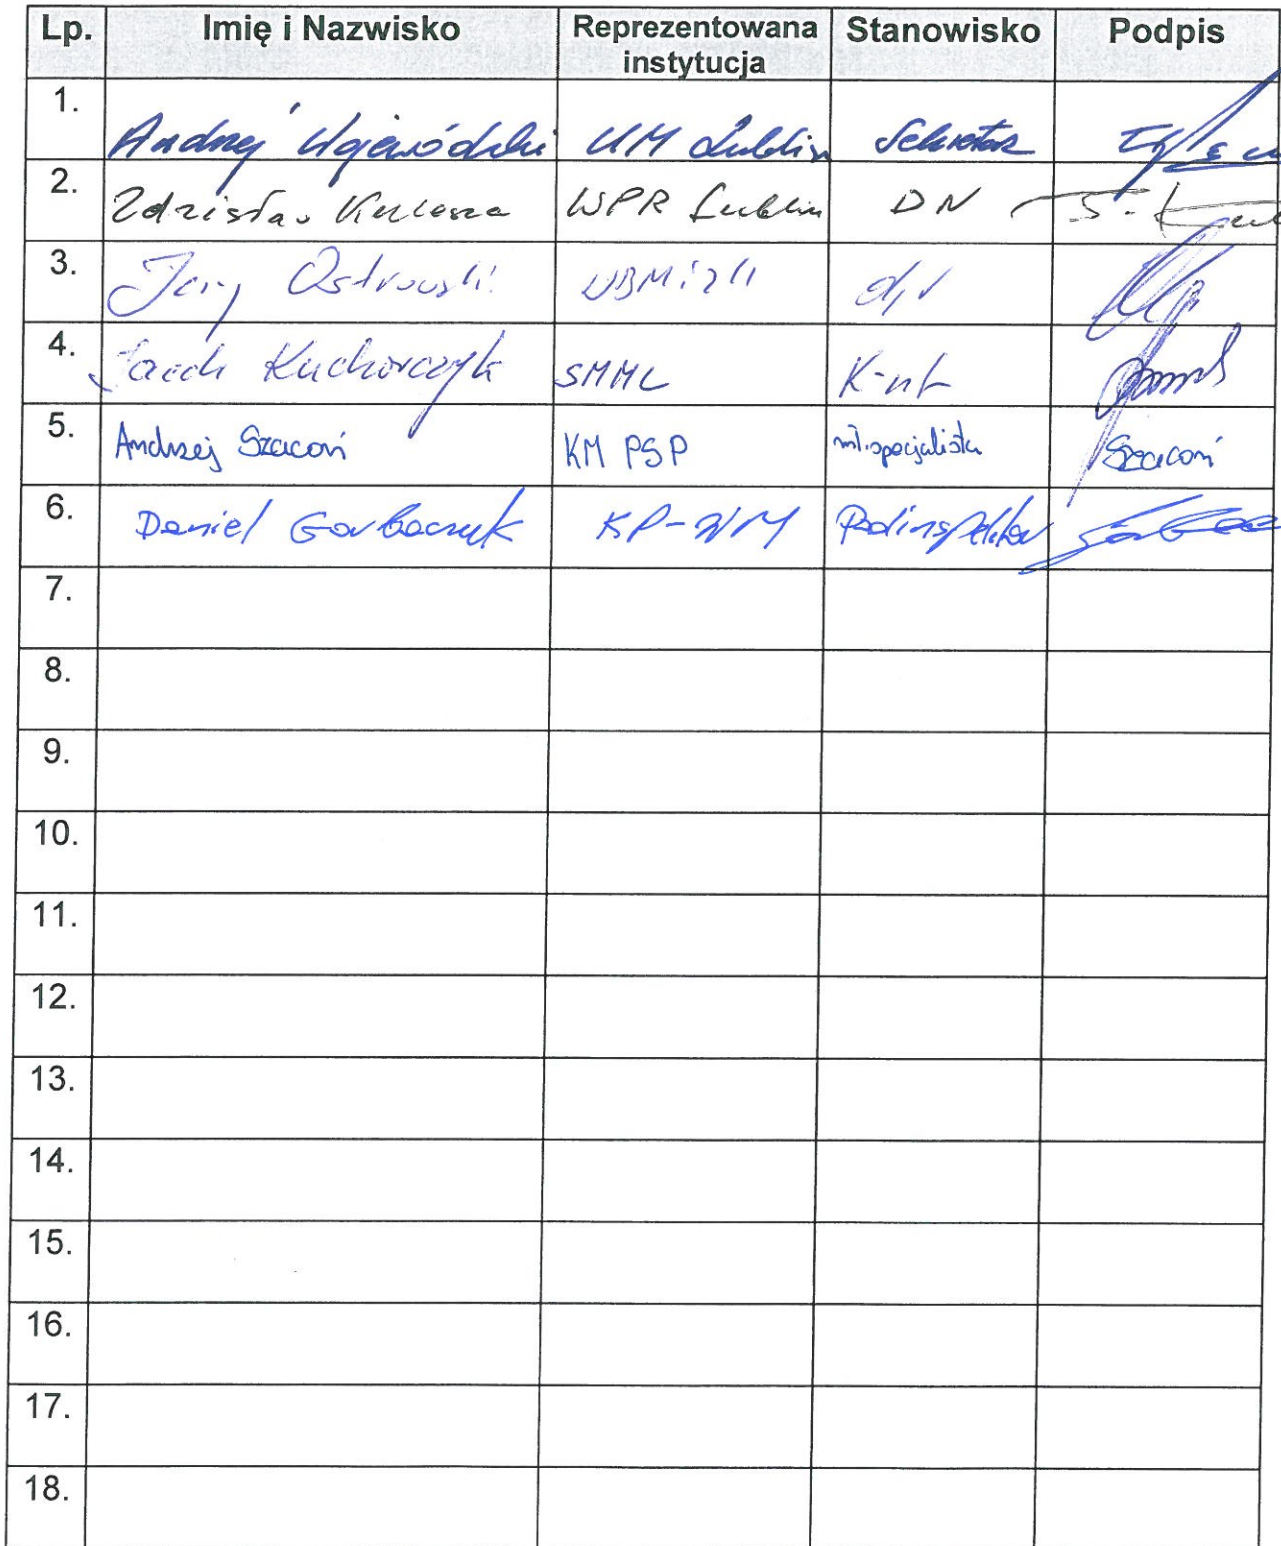 Lp. Imię i Nazwisko Reprezentowana instytucja Stanowisko Podpis
1. Andrzej Wojewódzki UM Lublin Sekretarz
2. Zdzisław Kulesza WPR Lublin DN
3. Jerzy Ostrowski dyr
4. Jacek Kucharczyk SMML K-nt
5. Andrzej Szacoń KM PSP mł.specjalista Szacoń
6. Daniel Garbaczuk Podinspektor
7.
8.
9.
10.
11.
12.
13.
14.
15.
16.
17.
18.